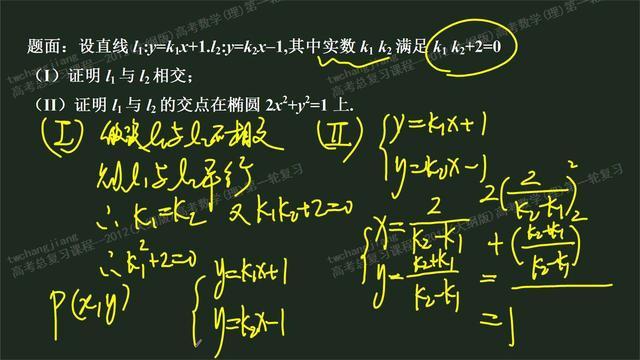 题面：设直线 l₁:y=k₁x+1.l₂:y=k₂x−1,其中实数 k₁ k₂ 满足 k₁ k₂+2=0
（I）证明 l₁ 与 l₂ 相交；
（II）证明 l₁ 与 l₂ 的交点在椭圆 2x²+y²=1 上.
(I) 假设 l₁与l₂不相交
则 l₁与l₂平行
∴ k₁=k₂ 又k₁k₂+2=0
∴ k₁²+2=0
P(x,y)
y=k₁x+1
y=k₂x-1
(II)
y=k₁x+1
y=k₂x-1
x=2/(k₂-k₁)
y=(k₂+k₁)/(k₂-k₁)
2(2/(k₂-k₁))²
+((k₂+k₁)/(k₂-k₁))²
=
=1
twchangjiang
高考总复习课程—2012
高考数学(理)第一轮复习